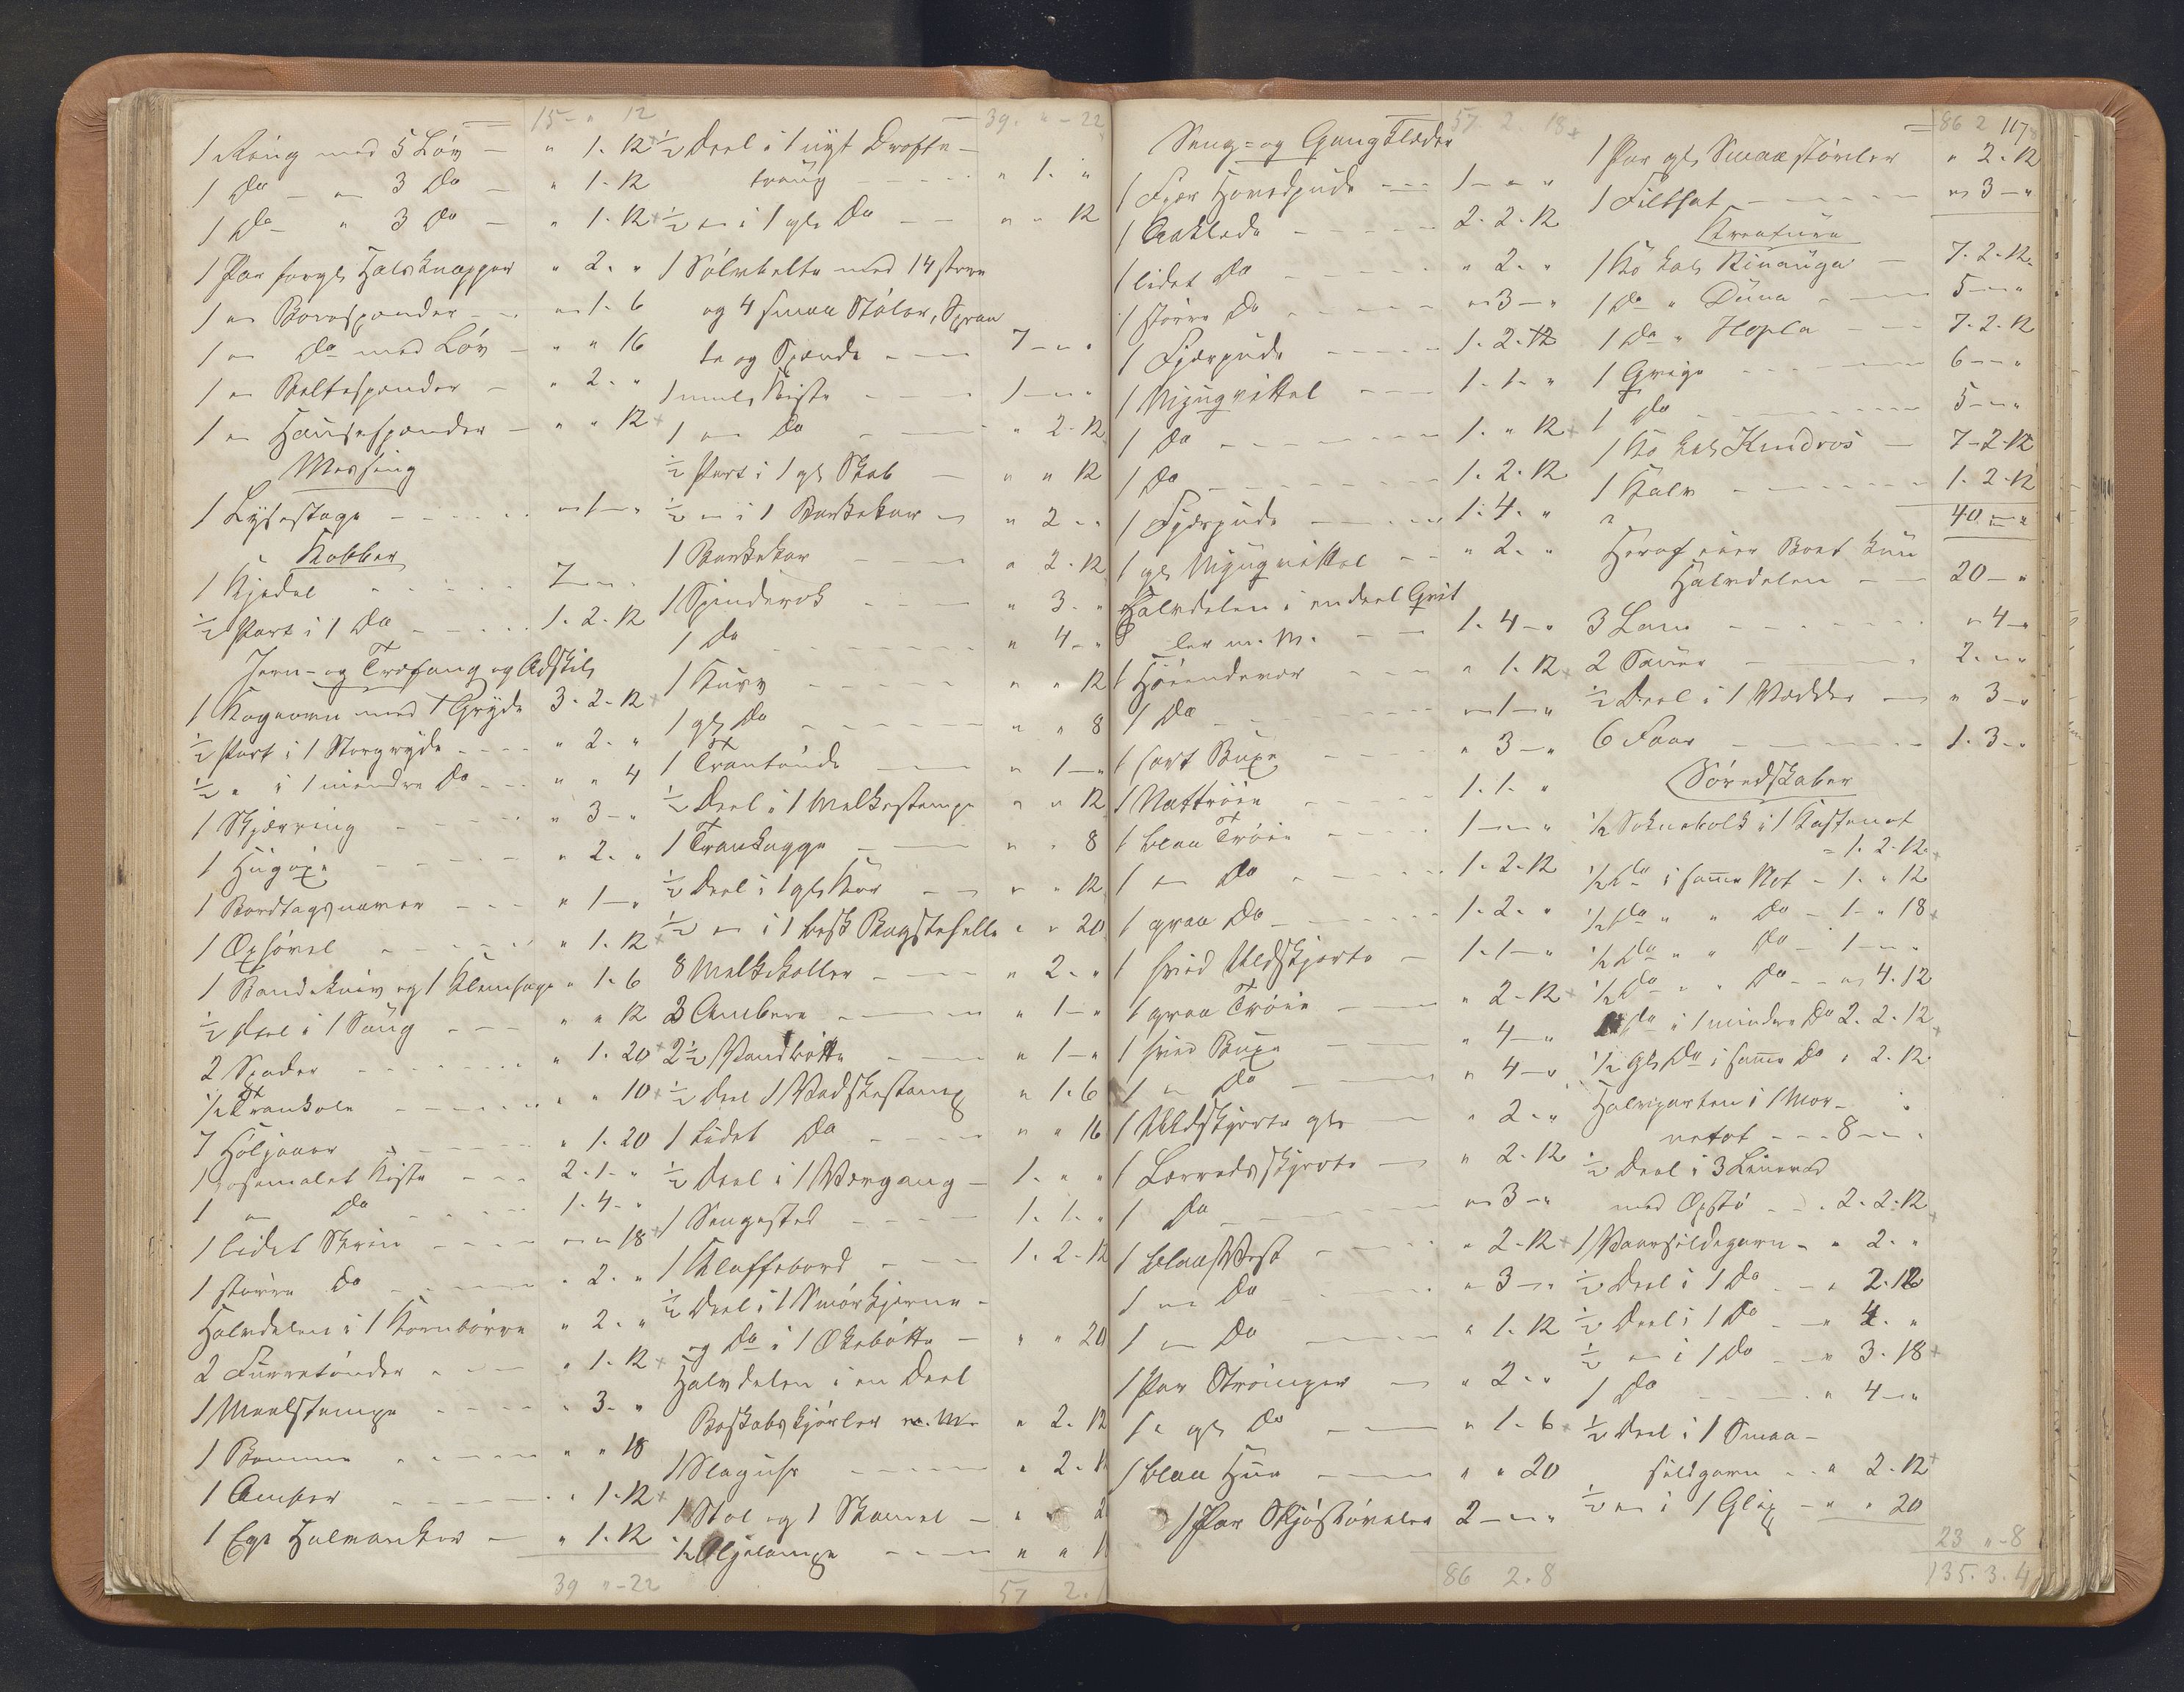 15 - " 12
1 Ring med 5 Løv — " 1. 12
1 Do — " 3 Do — " 1. 12
1 Do " 3 Do — " 1. 12
1 Par forgl. Halsknapper " 2. "
1 " Borespender — " 1. 6
1 " Do med Løv — " " 16
1 " Beltespender — " 2. "
1 " Hausespender — " " 12
Messing
1 Lysestage — " 1 — "
Kobber
1 Kjedel 7 — "
½ Part i 1 Do 1. 2. 12
Jern- og Træfang og Adskil.
1 Kogeovn med 1 Gryde 3. 2. 12
½ Part i 1 Storgryde " 2. "
½ " i 1 mindre Do " " 4
1 Skjæring " 3 — "
1 Hugøxe " 2. "
1 Bordlagsnaver " 1 — "
1 Øxhøvel " 1. 12
1 Baandkniv og 1 Klemsage " 1. 6
½ Deel i 1 Saug " " 12
2 Spader " 1. 20
½ Trankole " " 10
7 Høljauer " 1. 20
1 rosemalet Kiste 2. 1 — "
1 " Do 1. 4. "
1 lidet Skrin " " 18
1 større Do " 2. "
Halvdelen i 1 Kornbørre " 2. "
2 Furretønder " 1. 12
1 Meelstampe " 3. "
1 Bomme " " 18
1 Amber " 1. 12
1 Ege Halvanker " 1. 12
39 " - 22
39. " - 22
½ Deel i 1 nyt Drofte-
traug " 1. "
½ " i 1 gl. Do " " 12
1 Sølvbelte med 14 store
og 4 smaa Støler, Spraa
te og Spænde 7 — "
1 mal. Kiste 1 — "
1 " Do " 2. 12
½ Part i 1 gl. Skab " " 12
½ " i 1 Barkekar " 2 — "
1 Barkekar " 2. 12
1 Spinderok " 3. "
1 Do " 4 — "
1 Kurv " " 12
1 gl. Do " " 8
1 Trantønde " 1 — "
½ Deel i 1 Melkestampe " " 12
1 Trankagge " " 8
½ Deel i 1 gl. Kar " " 12
½ " i 1 besk. Bagstefelle " " 20
8 Melkekoller " 2. "
3 Ambere " 1 — "
2½ Vandbøtte " 1 — "
½ Deel 1 Vadskestamp " 1. 6
1 lidet Do " " 16
½ Deel i 1 Vævgang 1. " "
1 Sengested 1. 1. "
1 Klaffebord 1. 2. 12
½ Deel i 1 Smørkjerne
og Do i 1 Økebøtte " " 20
Halvdelen i en Deel
Boskabskjørler m. M. " 2. 12
1 Slaguhr " 2. 1
1 Stol og 1 Skammel " " 2
½ Oljelampe " " 1
57 2. 1
57 2 18
Seng- og Gangklæder
1 Fjær Hovedpude 1 — " "
1 Aaklæde 2. 2. 12
1 lidet Do " 2. "
1 større Do " 3 — "
1 Fjærpude 1. 2. 12
1 Mjugvittel 1. 1. "
1 Do 1. " 12
1 Do 1. 2. 12
1 Fjærpude 1. 4. "
1 gl. Mjugvittel " 2. "
Halvdelen i en deel Grit
ler m. M. 1. 4 — "
1 Høiendevar " 1. 12
1 Do " 1 — "
1 sort Buxe " 3 — "
1 Nattrøie 1. 1. "
1 blaa Trøie 1 — " "
1 " Do 1. 2. 12
1 graa Do 1. 2. "
1 hvid Uldskjorte 1. 1 — "
1 graa Trøie " 2. 12
1 hvid Buxe " 4 — "
1 " Do " 4 — "
1 Uldskjorte gl. " 2. "
1 Lærredsskjorte " 2. 12
1 Do " 3 — "
1 blaa Vest " 2. 12
1 " Do " 3 — "
1 " Do " 1. 12
1 Par Strømper " 2. "
1 " gl. Do " 1. 6
1 blaa Hue " " 20
1 Par Skjøstøvler 2 — " "
86 2. 8
86 2 117
1 Par gl. Smaastøvler " 2. 12
1 Filthat " 3 — "
Kreature
1 Ko kal. Kinauga 7. 2. 12
1 Do " Duna 5 — "
1 Do " Hopla 7. 2. 12
1 Qvige 6 — "
1 Do 5 — "
1 Ko kal. Kindros 7 - 2. 12
1 Kalv 1. 2. 12
40 — "
Heraf eier Boet kun
Halvdelen 20 — "
3 Lam " 4 — "
2 Sauer 2. — "
½ Deel i 1 Vædder " 3 — "
6 Faar 1. 3 — "
Søredskaber
½ Søknebolk i 1 Kastenot
" 1. 2. 12
½ Do i samme Not — 1. " 12
½ Do " " Do — 1 — " 18
½ Do " " Do — 1 — "
½ Do " " Do — " 4. 12
Do i 1 mindre Do 2. 2. 12
½ gl. Do i samme Do " 2. 12
Halvparten i 1 Mor-
netot — 8 — "
½ Deel i 3 Linered
med Opstø 2. 2. 12
1 Vaarsildegarn " 2. "
½ Deel i 1 Do " 2. 12
½ Deel i 1 Do " 4. "
½ " i 1 Do " 3. 18
1 Do " 4 — "
½ Deel i 1 Smaa-
sildgarn " 2. 12
½ " i 1 Glip " " 20
23 " - 8
135. 3. 4